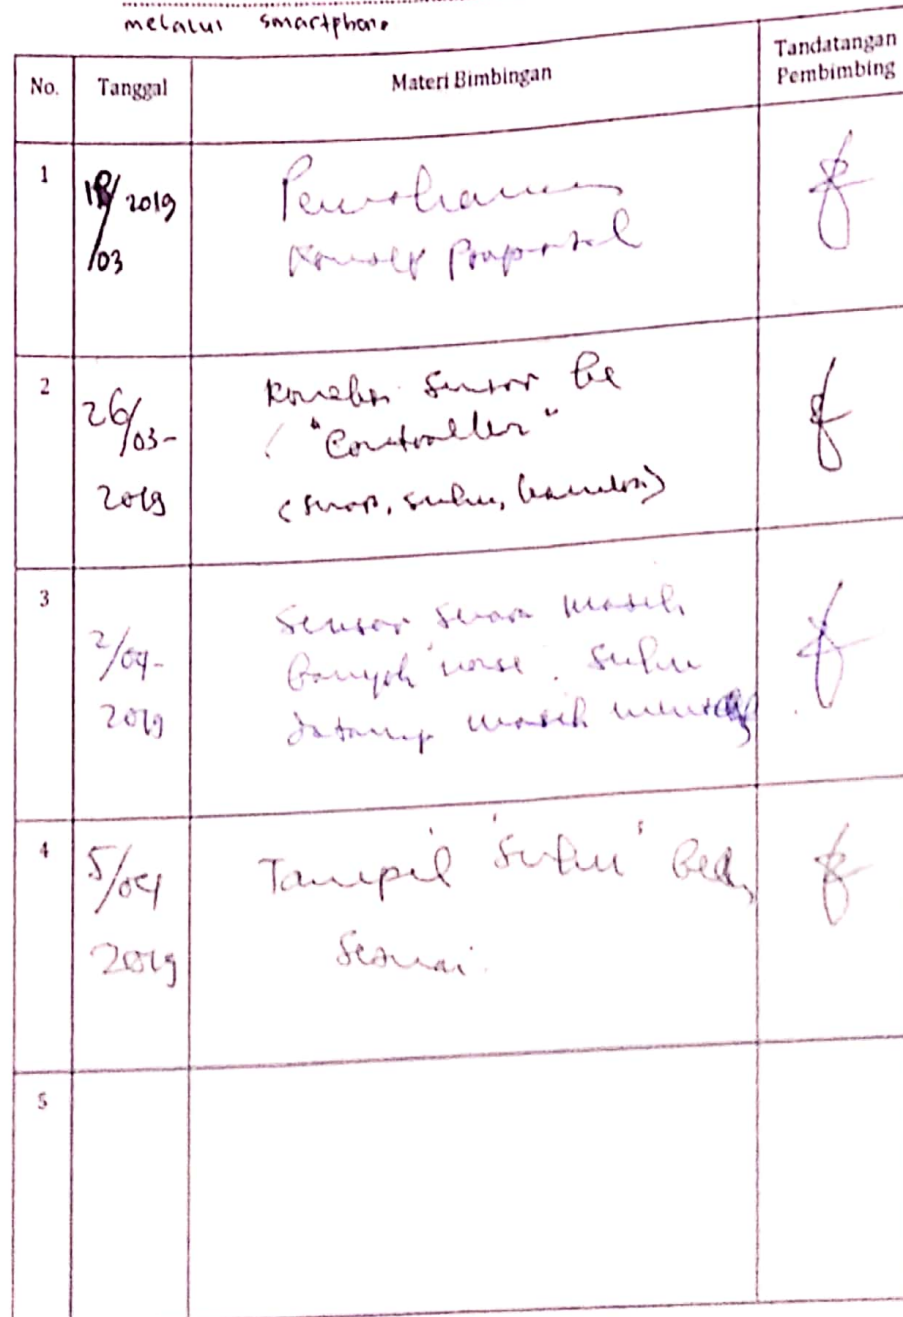 melalui smartphone
No. Tanggal Materi Bimbingan Tandatangan
Pembimbing
1 2019 Pemahaman
/03 Konsep Proposal
2 26/03- Koneksi Sensor ke
"Controller"
2019 (suara, suhu, kamera)
3 2/04- Sensor suara masih
banyak noise. Suhu
2019 datang masih
4 5/04 Tampil 'Suhu'
2019 Sesuai.
5